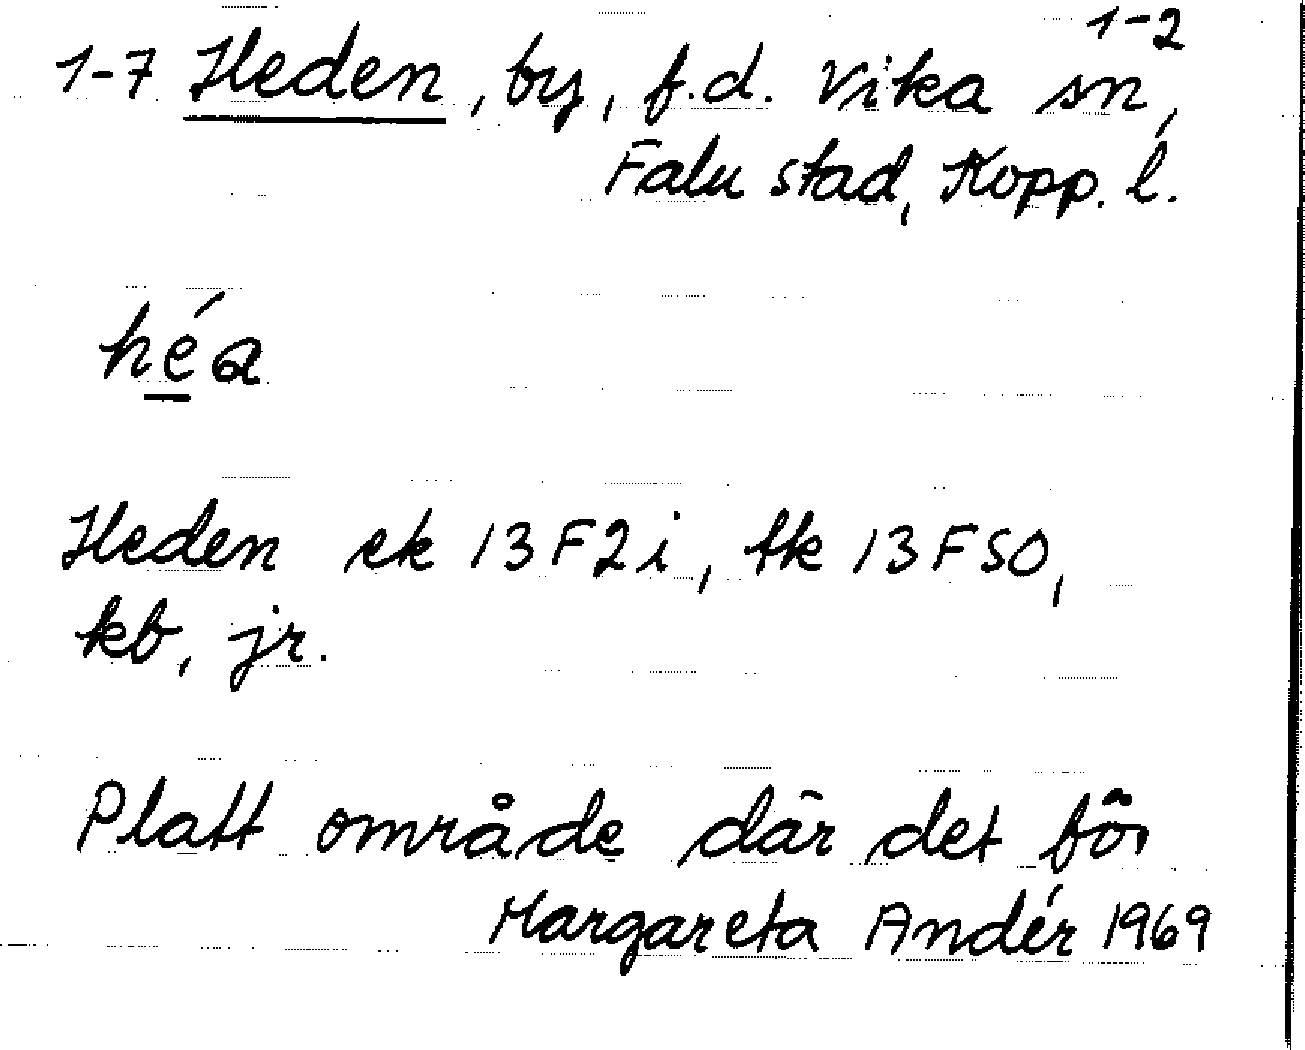 1-2
1-7 Heden, by, f.d. Vika sn,
Falu stad, Kopp. l.
héa
Heden ek 13F2i, tk 13F SO,
kb, jr.
Platt område där det för
Margareta Andér 1969